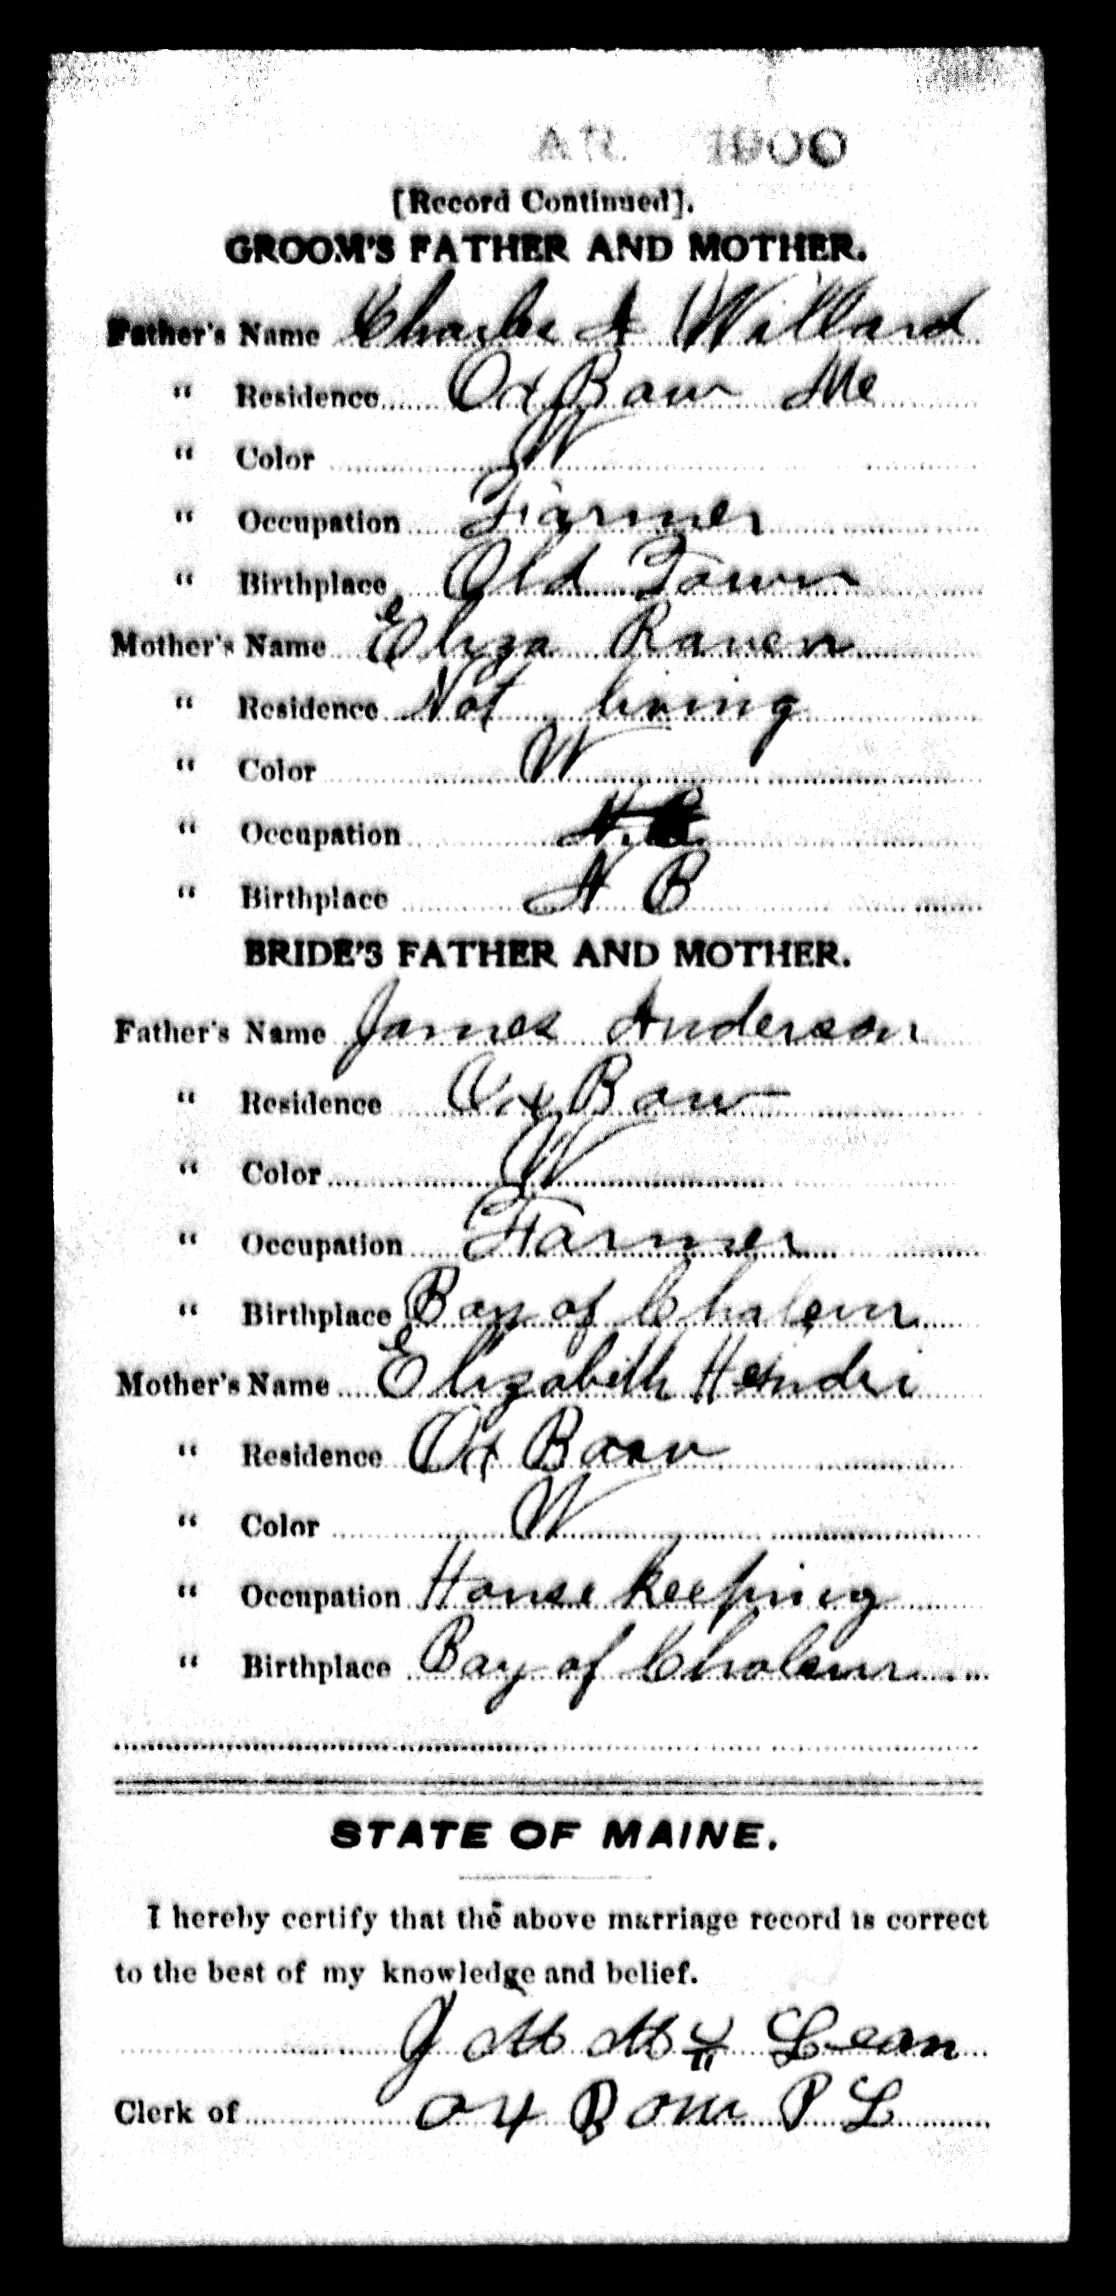 1900
[Record Continued].
GROOM'S FATHER AND MOTHER.
Father's Name Charles A Willard
" Residence Ox Bow Me
" Color W
" Occupation Farmer
" Birthplace Old Town
Mother's Name Eliza Raven
" Residence Not living
" Color W
" Occupation
" Birthplace N B
BRIDE'S FATHER AND MOTHER.
Father's Name James Anderson
" Residence Ox Bow
" Color W
" Occupation Farmer
" Birthplace Bay of Chaleur
Mother's Name Elizabeth
" Residence Ox Bow
" Color W
" Occupation House keeping
" Birthplace Bay of Chaleur
STATE OF MAINE.
I hereby certify that the above marriage record is correct
to the best of my knowledge and belief.
J M Mc Lean
Clerk of Ox Bow P L